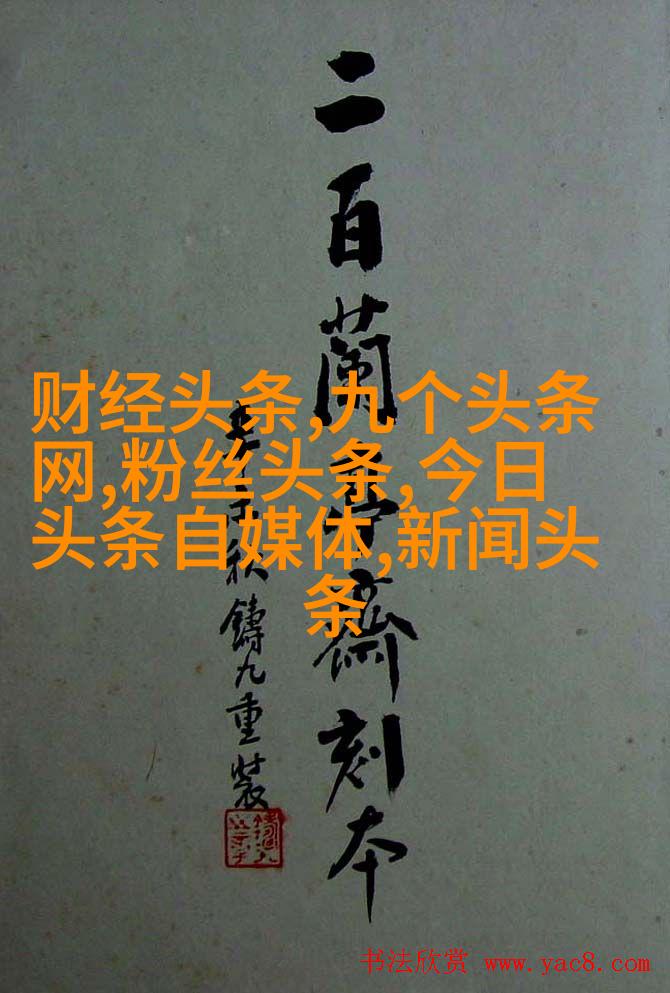 二百蘭亭齋刻本
秋鑄九重裝
财经头条,九个头条
网,粉丝头条,今日
头条自媒体,新闻头
条
书法欣赏 www.yac8.com